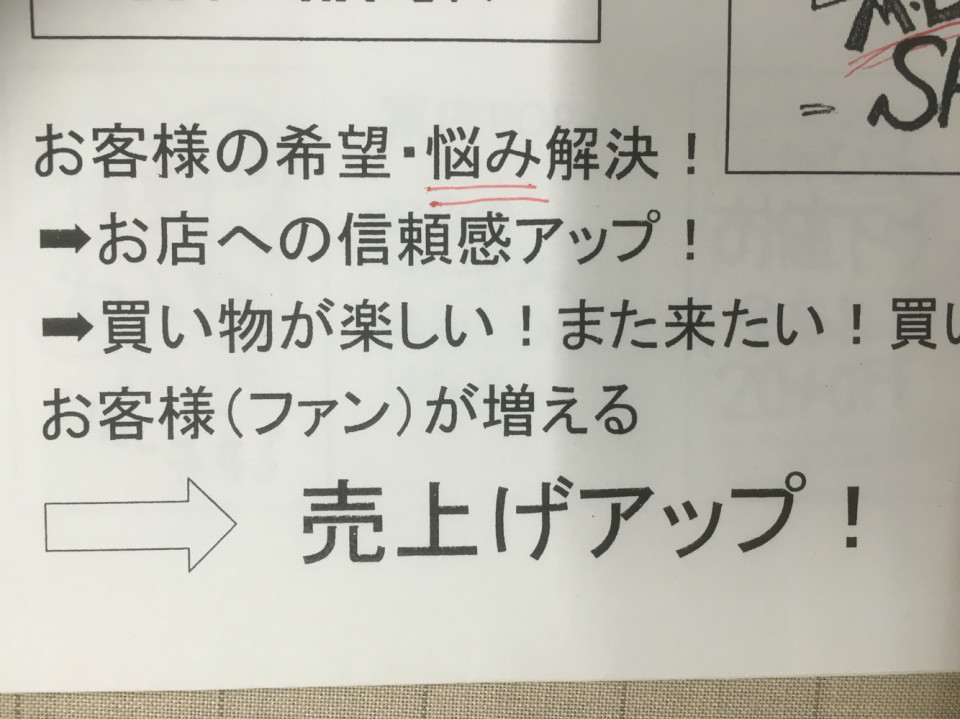 お客様の希望・悩み解決！
➡お店への信頼感アップ！
➡買い物が楽しい！また来たい！買い
お客様（ファン）が増える
売上げアップ！